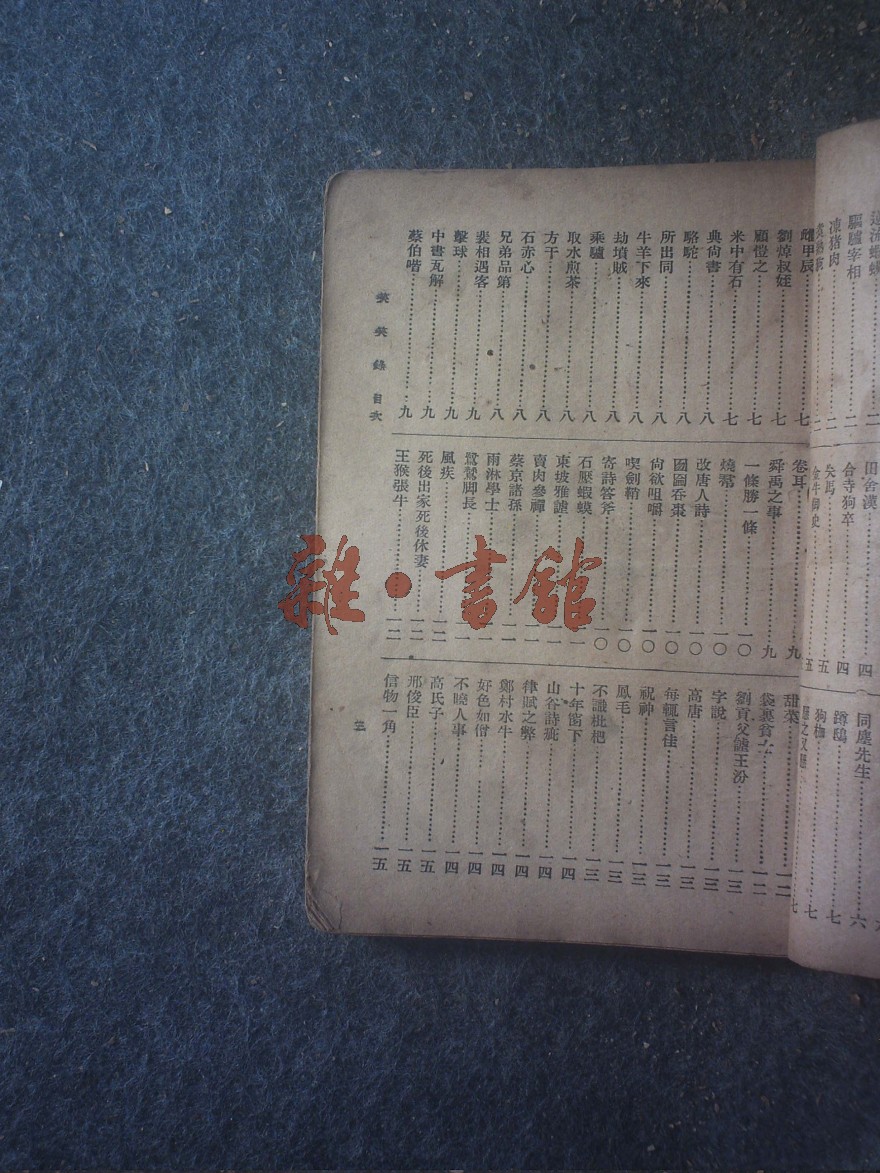 驅驢宰相……二
凍豬肉……二
雌甲辰……七
劉焯叔姪……七
顧愷之……七
米中有石……七
典尙書……八
駱駝……八
所出同……八
牛羊下來……八
劫墳賊……八
乘驢……八
取水煎茶……八
方干……八
石赤心……八
兄弟品第……八
裴相遇客……九
擊球……九
中書瓦解……九
蔡伯喈……九
田舍漢……四
合寺狗卒……四
失馬……五
金牛御史……五
卷耳……九
舜禹之事……九
一條勝一條……一〇
燒裙……一〇
改唐人詩……一〇
囫圇吞棗……一〇
尙欲咀嚼……一〇
喫劍鞘……一〇
寄詩答斧……一〇
石壓蝦蟆……一一
東坡雅謔……一一
賣肉參禪……一一
蔡京諸孫……一一
雨淋學士……一一
鴛鴦脚長……一一
風疾……一二
死後出家死後休妻……一二
王猴張牛……一二
同塵先生……六
蹲鴟……六
狗枷……七
甜菜……一二
袋裏貧士……一二
劉貢父謔王汾……一三
字說……一三
高唐……一三
每輒言佳……一三
祝神……一三
鳳毛……一三
不識枇杷……一三
十年窗下……一四
山谷詩疵……一四
律賦之弊……一四
鄭村水牛……一四
好色如僧……一四
不曉人事……一四
高氏子……一五
邢俊臣……一五
信物一角……一五
笑笑錄 目次
三
雜·書館